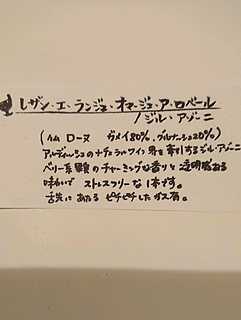 レザン・エ・ランジュ・オマージュ・ア・ロベール
/ジル・アゾーニ
(仏 ローヌ ガメイ80%、グルナッシュ20%)
アルディッシュのナチュラルワイン界を牽引するジル・アゾーニ
ベリー系果実のチャーミングな香りと透明感ある
味わいで ストレスフリーな1本です。
舌先にあたる ピチピチしたガス有。